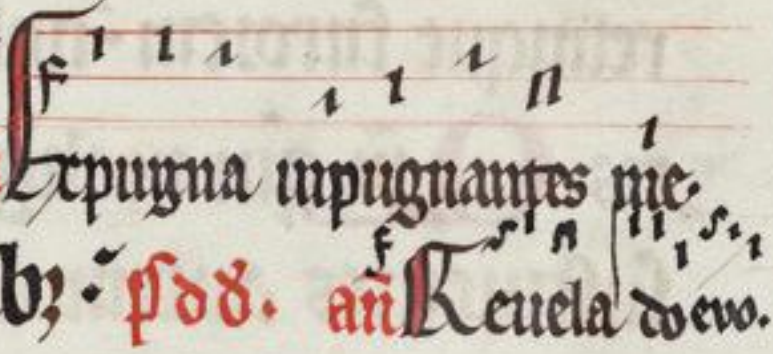 Expugna inpugnantes me.
bꝫ: p̃s d̃d. añ Reuela d̃o evo.